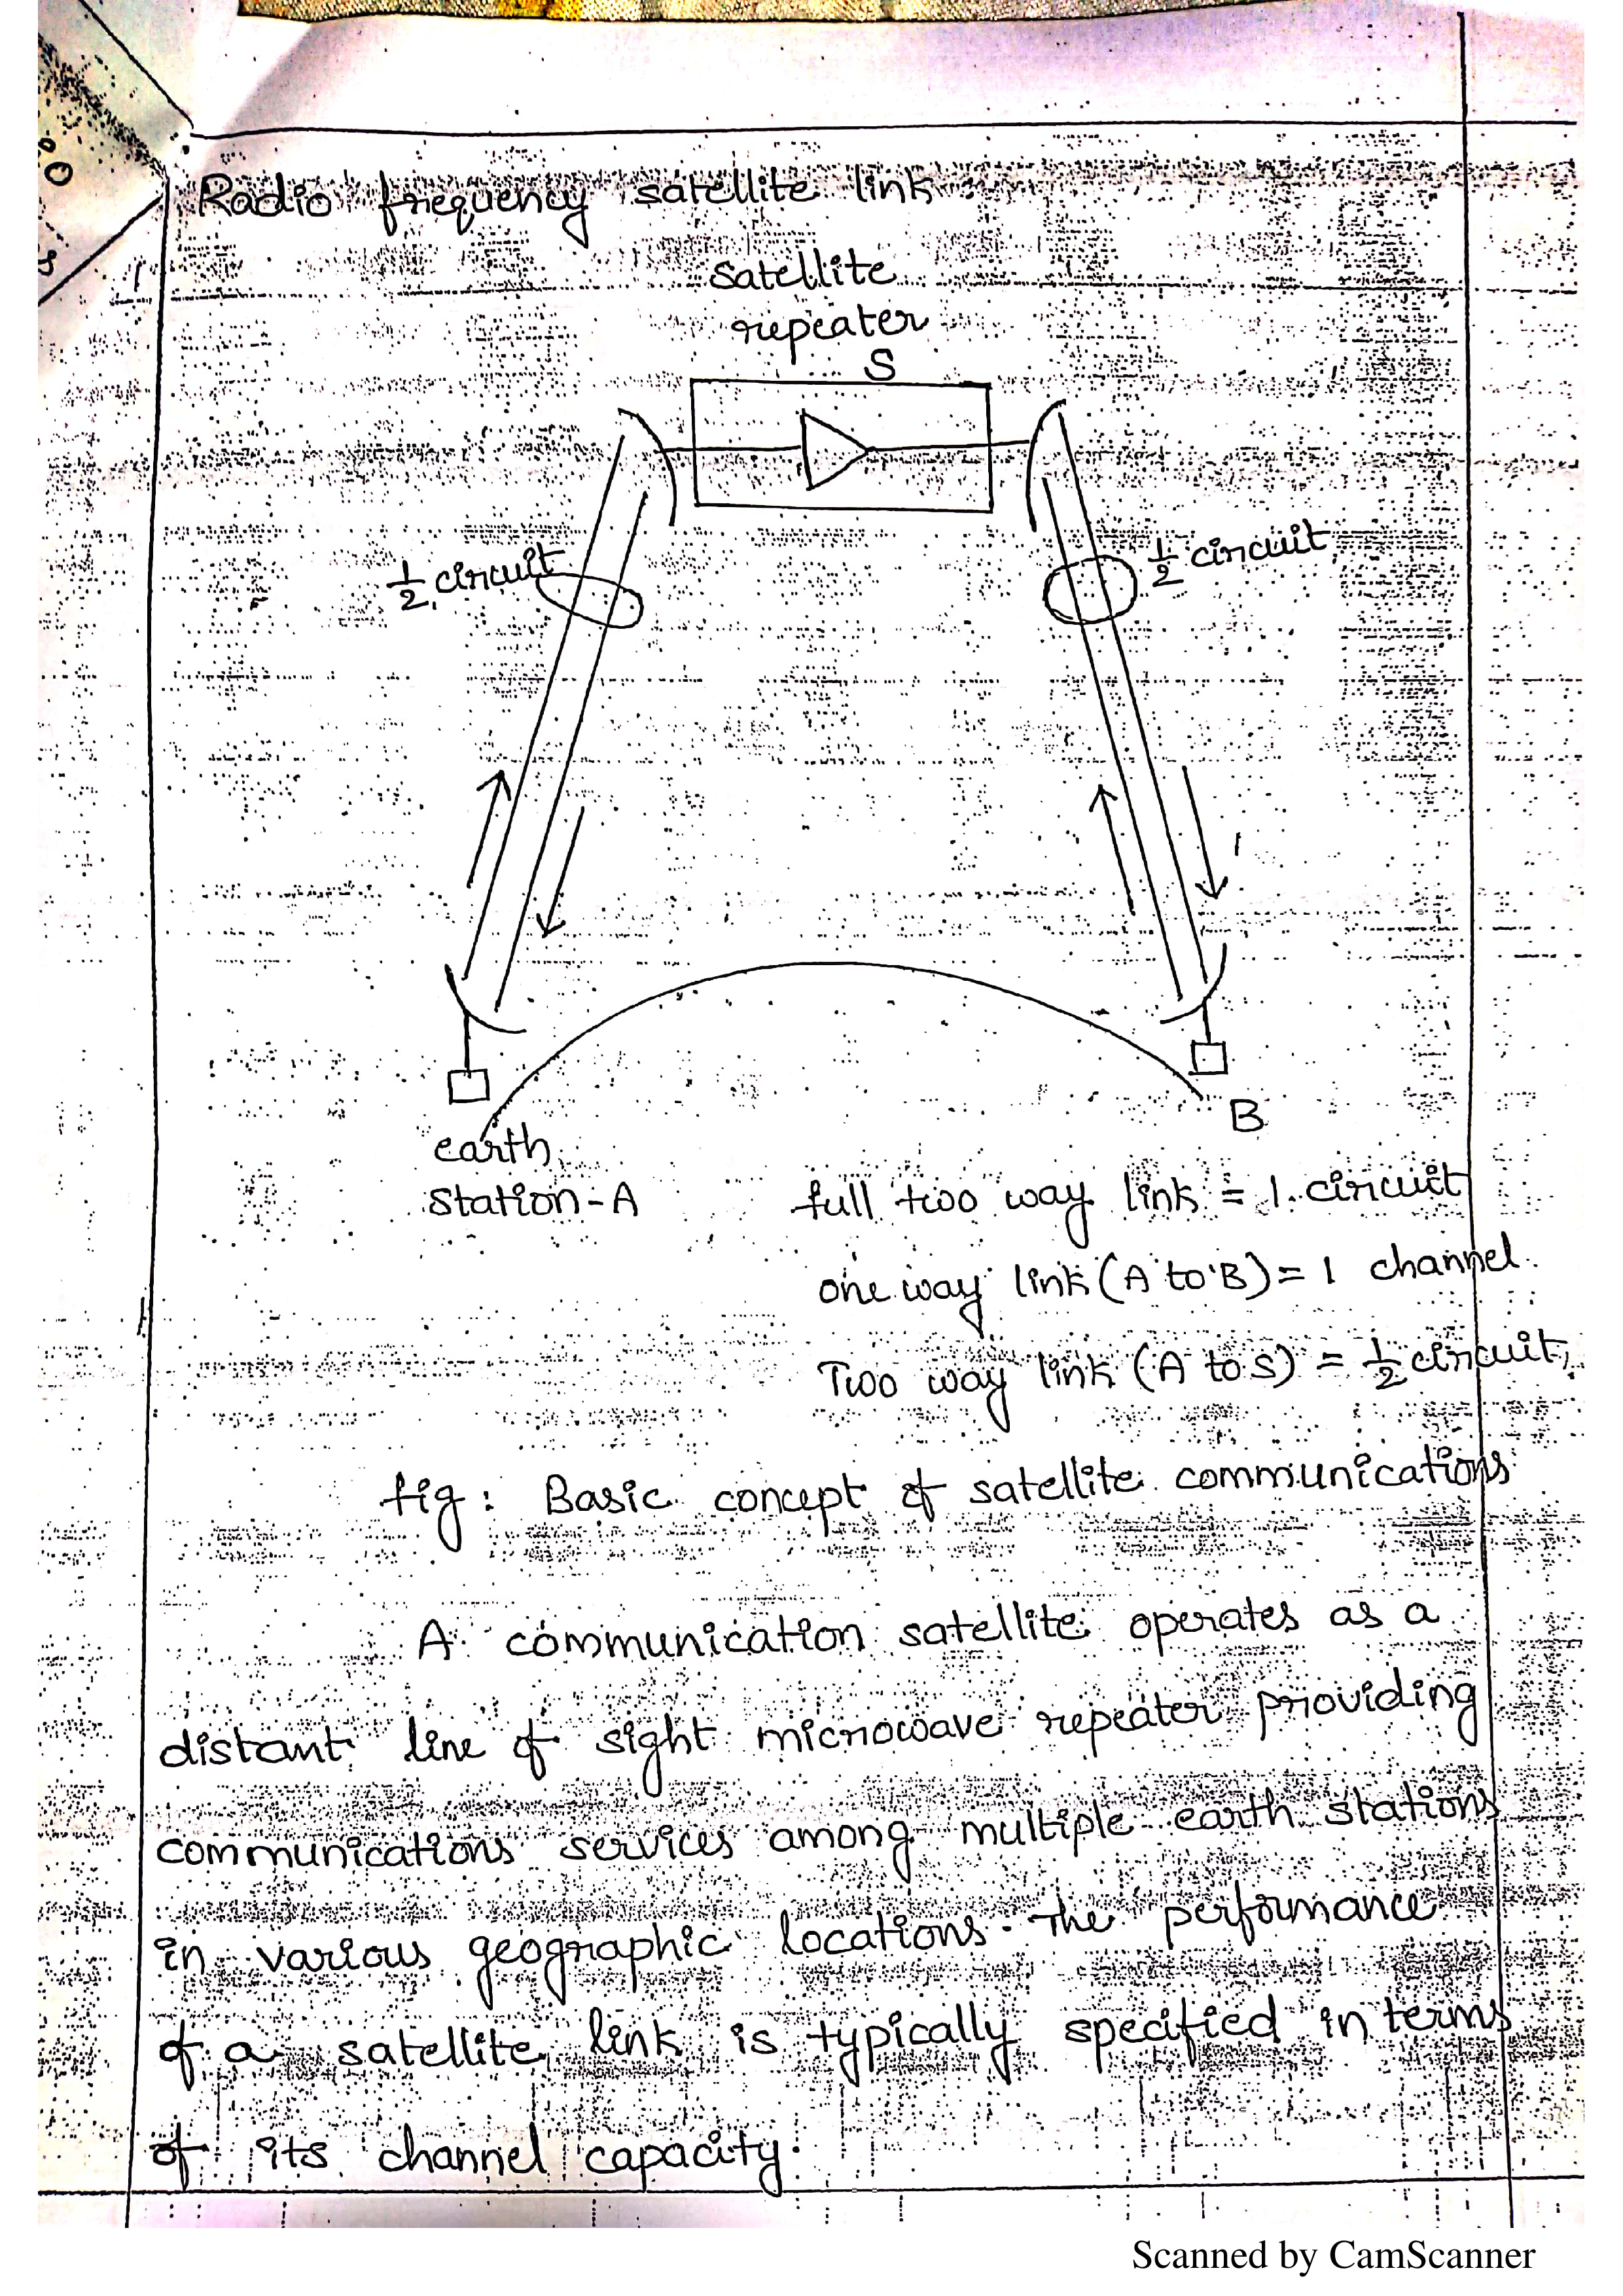 Radio frequency satellite link
satellite
repeater
S
1/2 circuit
1/2 circuit
earth
station-A
B
full two way link = 1 circuit
one way link (A to B) = 1 channel.
Two way link (A to S) = 1/2 circuit,
fig: Basic concept of satellite communications
A communication satellite operates as a
distant line of sight microwave repeater providing
communications services among multiple earth stations
in various geographic locations. The performance
of a satellite link is typically specified in terms
of its channel capacity.
Scanned by CamScanner